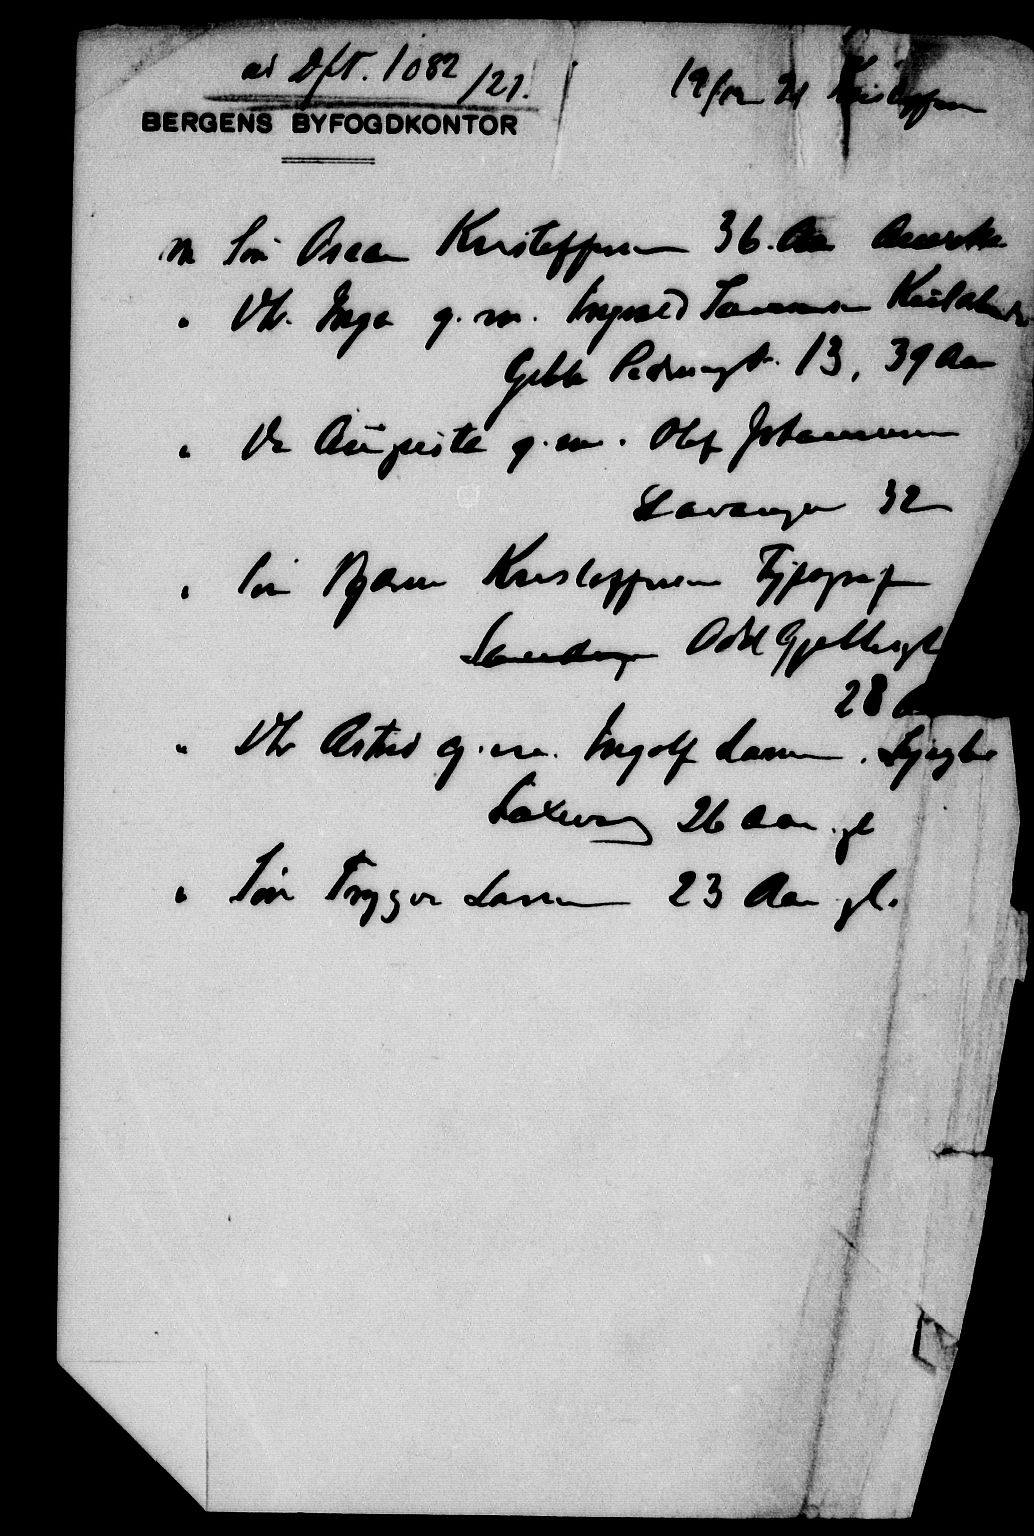 ad Dft. 1082/21.
19/12 21 Kristoffersen
BERGENS BYFOGDKONTOR
m Søn Oscar Kristoffersen 36 Aar Amerika
" Dtr. Inga g. m. Ingvald
Pedersengt. 13, 39 Aar
" Dtr Augusta g. m. Olaf Johannessen
Stavanger 32
" Søn Bjarne Kristoffersen Typograf
Odd Gjellesgt
28 A
" Dtr Astrid g. m. Ingolf Larsen.
Laxevaag 26 Aar gl
" Søn Trygve Larsen 23 Aar gl.